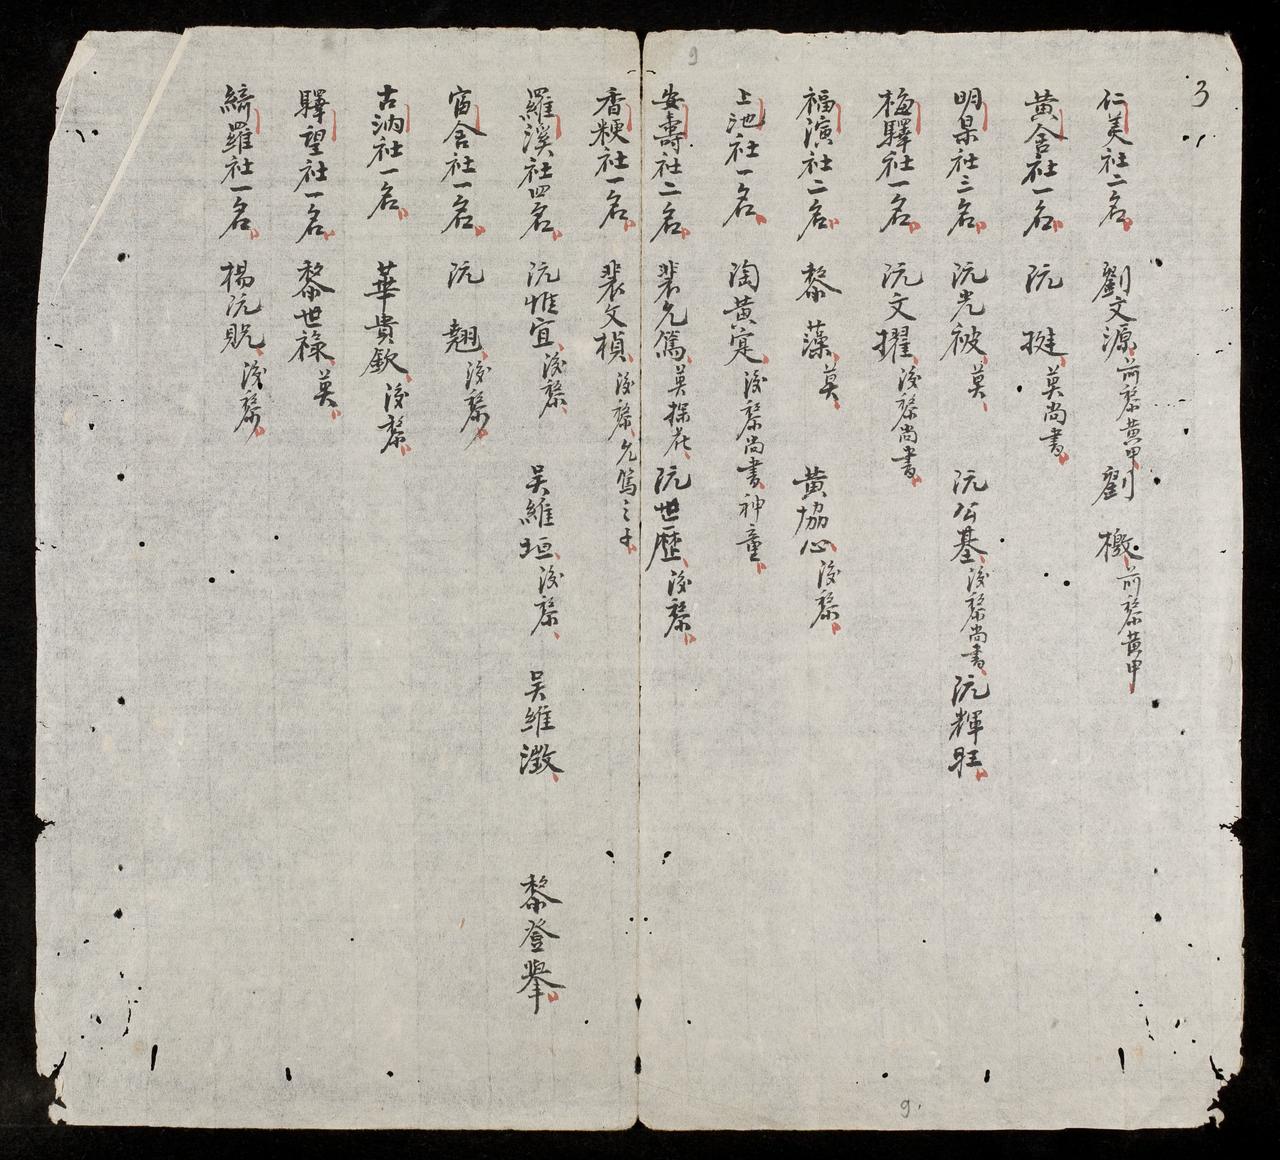 3
仁美社二名 劉文源 前黎黄甲 劉 檄 前黎黄甲
黄舍社一名 阮 揵 莫尚書
明杲社三名 阮光被 莫 阮公基 後黎尚書 阮輝旺
梅驛社一名 阮文擢 後黎尚書
福演社二名 黎 藻 莫 黄協心 後黎
上池社一名 陶黄寔 後黎尚書神童
安壽社二名 裴允篤 莫探花 阮世歷 後黎
香粳社一名 裴文楨 後黎允篤之子
羅溪社四名 阮惟宜 後黎 吴維垣 後黎 吴維澂 黎登舉
富舍社一名 阮 翹 後黎
古汭社一名 華貴欽 後黎
驛望社一名 黎世祿 莫
綺羅社一名 楊阮 後黎
9
9